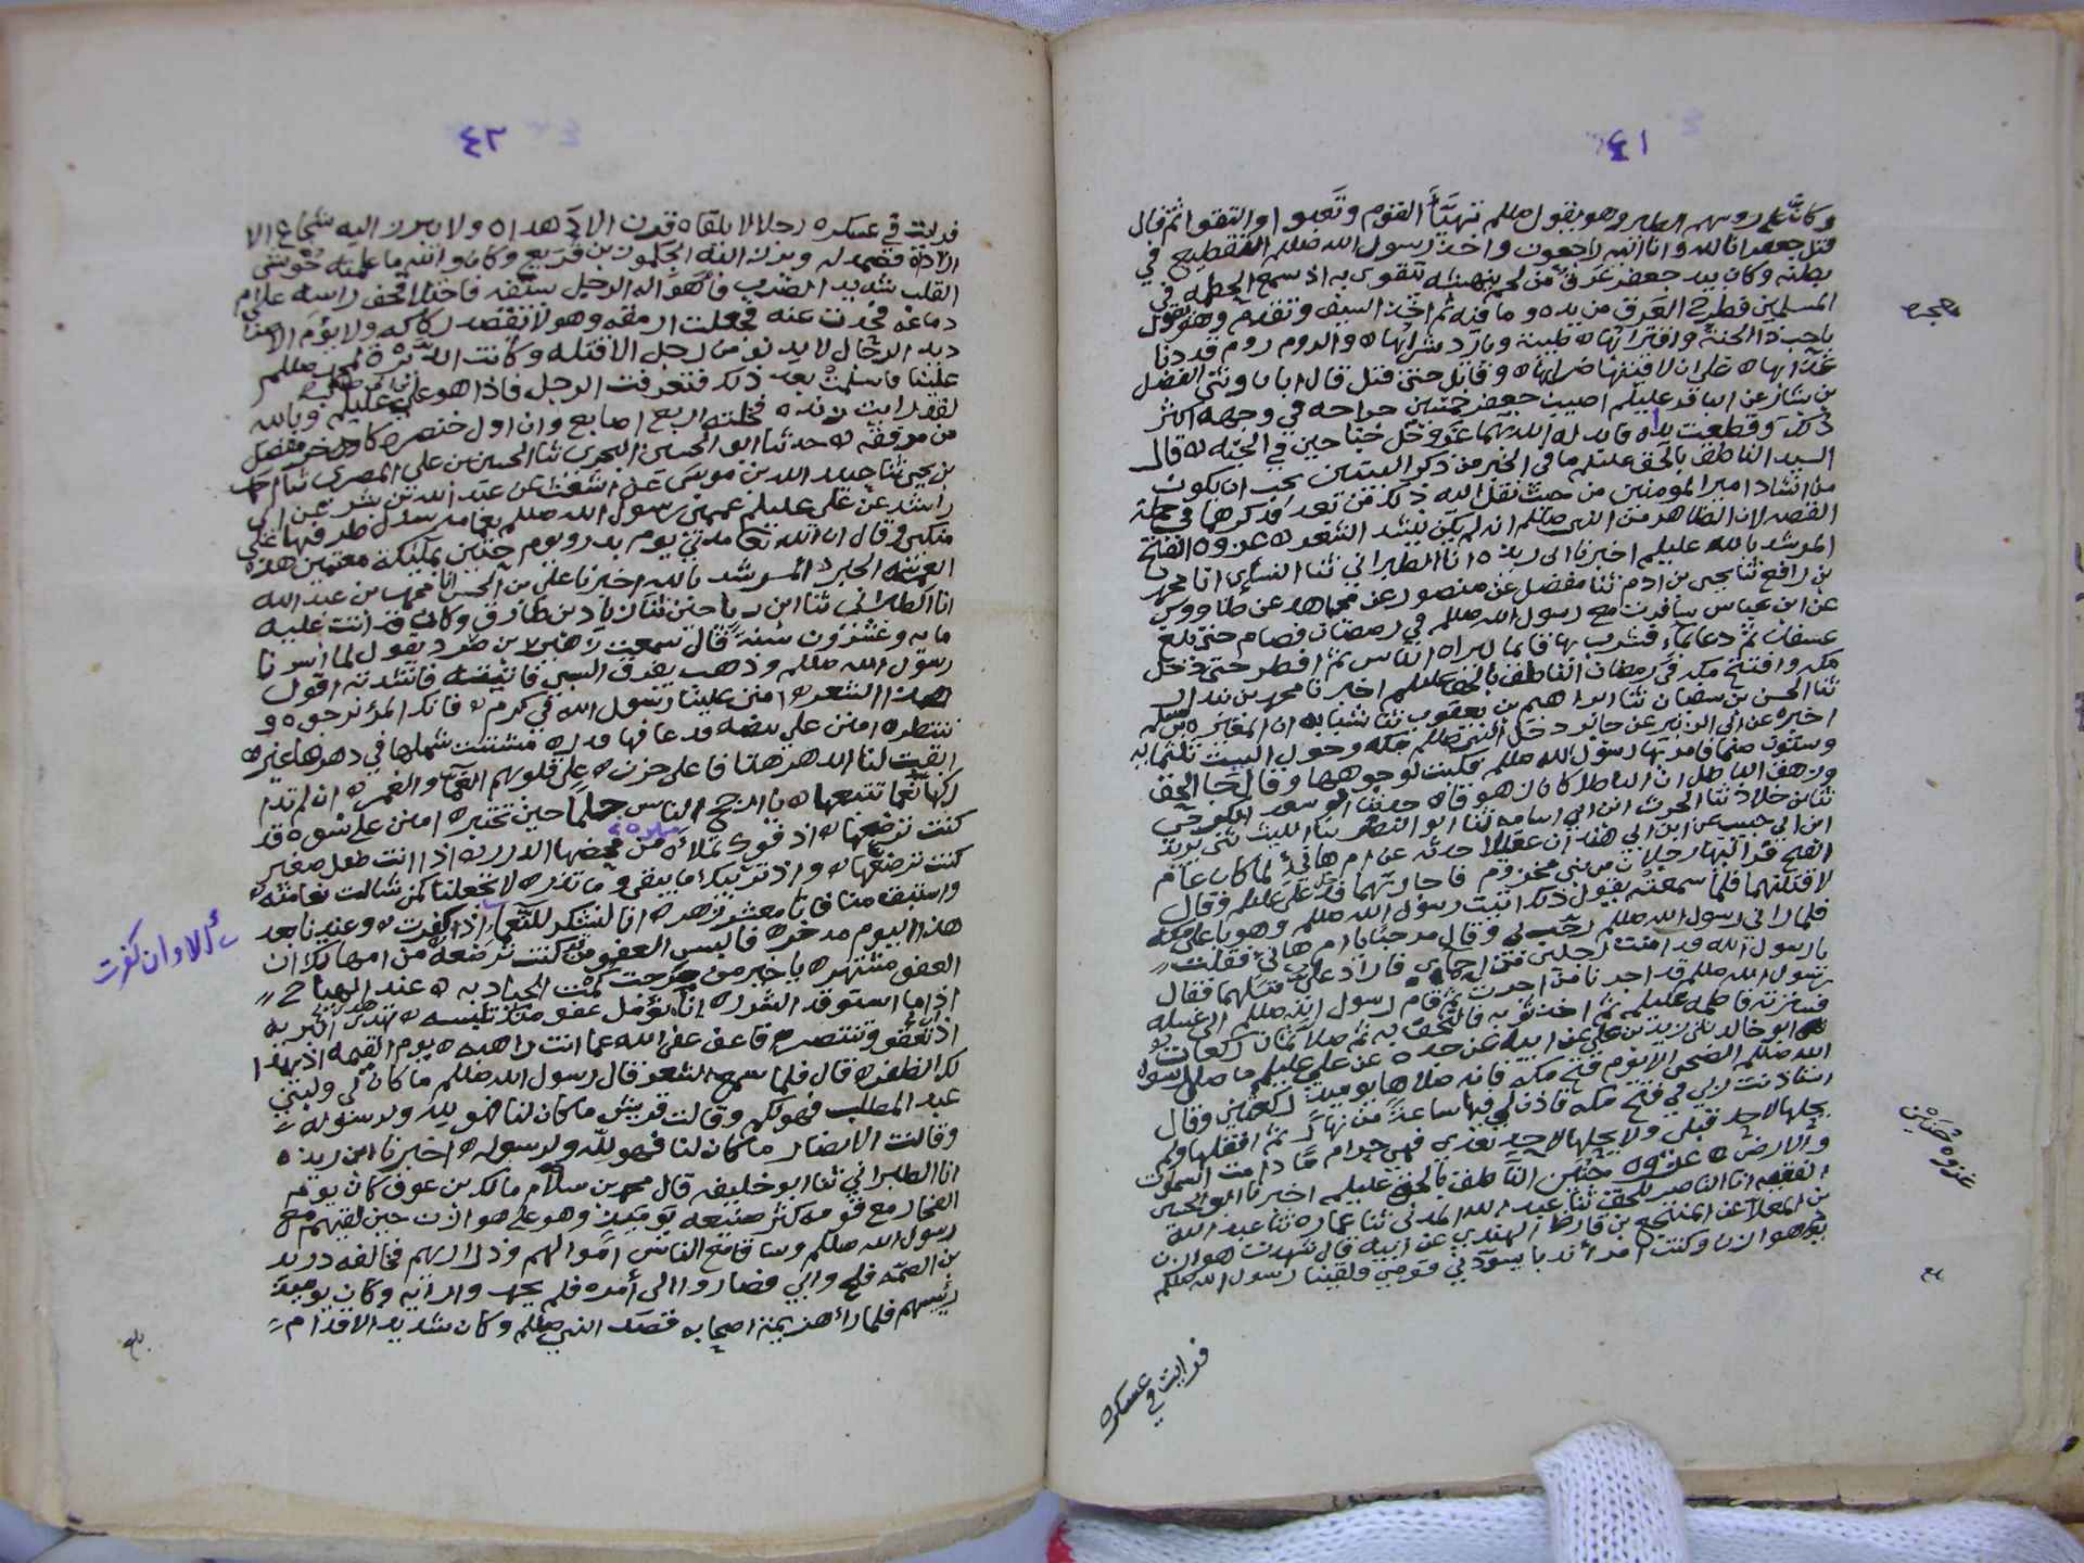 ٤١
وكان على رؤسهم الطير وهو يقول صللم تهيّأ القوم وتعبوا والتقوا ثم قال
قتل جعفر انا لله وانا اليه راجعون واخذ رسول الله صللم التقطيع في
بطنه وكان بيد جعفر عرق من لحم ينهشه يتقوى به اذ سمع الحطمه في
المسلمين فطرح العرق من يده وما فيه ثم اخذ السيف وتقدم وهو يقول
يا حبذا الجنة واقترابها ه طيبة وبارد شرابها ه والروم روم قد دنا
عذابها ه علي ان لاقيتها ضرابها ه وقاتل حتى قتل قال ابان وثني الفضل
بن يسار عن الباقر عليلم اصيب جعفر خمسين جراحه في وجهه اكثر
ذلك وقطعت يداه فابدله الله بهما جناحين في الجنه ه قال
السيد الناطق بالحق عليلم ما في الخبر من ذكر البيتين يجب ان يكون
من انشاد امير المومنين من حيث نقل اليه ذلك من بعد فذكرها في جملة
القصه لان الظاهر من النبي صللم انه لم يكن ينشد الشعر ه غزوه الفتح
المرشد بالله عليلم اخبرنا ابن ريذه انا الطبراني ثنا النسائي انا محمد
بن رافع ثنا يحيى بن ادم ثنا مفضل عن منصور عن مجاهد عن طاووس
عن ابن عباس سافرت مع رسول الله صللم في رمضان فصام حتى بلغ
عسفان ثم دعا بماء فشرب بها قايما ليراه الناس ثم افطر حتى دخل
مكه وافتتح مكه في رمضان الناطق بالحق عليلم اخبرنا محمد بن بندار
ثنا الحسن بن سفيان ثنا ابراهيم بن يعقوب ثنا شبابه ان المغيره بن مسلم
اخبره عن ابي الزبير عن جابر دخل النبي صللم مكه وحول البيت ثلثمايه
وستون صنما فامر بها رسول الله صللم فكبت لوجوهها وقال جا الحق
وزهق الباطل ان الباطل كان زهوقا ه
ثنا بن خلاد ثنا الحرث ابن ابي اسامه ثنا ابو النضر ثنا الليث ثني يزيد
ابن ابي حبيب عن ابن ابي هند ان عقيلا حدثه عن ام هانئ لما كان عام
الفتح فر اليها رجلان من بني مخزوم فاجارتهما فدخل علي عليلم فقال
لاقتلنهما فلما سمعته يقول ذلك اتيت رسول الله صللم وهو باعلى مكه
فلما راني رسول الله صللم رحب لي وقال مرحبا يا ام هانئ فقلت
يا رسول الله قد امنت رجلين من احماي فاراد علي قتلهما فقال
رسول الله صللم قد اجرنا من اجرت ثم قام رسول الله صللم الى غسله
فسترته فاطمه عليلم ثم اخذ ثوبه فالتحف به ثم صلا ثمان ركعات
ابو خالد ثني زيد بن علي عن ابيه عن جده عن علي عليلم ما صلى رسول
الله صللم الضحى الا يوم فتح مكه فانه صلاها يوميذ ركعتين وقال
استاذنت ربي في فتح مكه فاذن لي فيها ساعة من نهار ثم اقفلها ولم
يحلها لاحد قبلي ولا يحلها لاحد بعدي فهي حرام ما دامت السموات
والارض ه غزوه حنين الناطق بالحق عليلم اخبرنا ابو الحسين
الفقيه انا الناصر للحق ثنا عبد الله المدني ثنا عماره ثنا عبد الله
بن المعلا عن المنتجع بن قارظ الهندي عن ابيه قال شهدت هوازن
وكنت امرأ ند با يسودني قومي ولقينا رسول الله صللم
غزوه حُنَين
فرايت في عسكره
٤٢
فرايت في عسكره رجلا لا يلقاه قرن الا دهداه ولا يبرز اليه شجاع الا
ارداه فصمد له وبرز اليه الجلمود بن قريع وكان والله ما علمته حوشي
القلب شديد الضرب فاهوا له الرجل بسيفه فاختلا قحف راسه
دماغه فحدت عنه وجعلت ارمقه وهو لا يقصد ركاكه ولا يؤم الا صناديد
الرجال لا يدنو من رجل الا قتله وكانت الدبرة لمحمد صللم
علينا فاسلمت بعد ذلك فتعرفت الرجل فاذا هو علي عليلم وبالله
لقد رايت زنده فخلته اربع اصابع وان اول خنصره كاخر مفصل
من مرفقه ه حدثنا ابو الحسين البحري ثنا الحسين بن علي المصري ثنا احمد
بن يحيى ثنا عبيد الله بن موسى عن اشعث عن عبد الله بن بشر عن ابي
راشد عن علي عليلم عممني رسول الله صللم بعمامه سدل طرفها على
منكبي وقال ان الله تعا مدني يوم بدر ويوم حنين بمليكة معتمين هذه
العمة الخبر ه المرشد بالله اخبرنا علي بن الحسن انا محمد بن عبد الله
انا الطبراني ثنا ابن رياحين ثنا زياد بن طارق وكان قد اتت عليه
مايه وعشرون سنة قال سمعت زهير بن صرد يقول لما اسرنا
رسول الله صللم وذهب يفرق السبي فاتيته فانشدته اقول
هذا الشعر ه امنن علينا رسول الله في كرم ه فانك المرؤ نرجوه و
ننتظره امنن على بيضه قد عاقها قدر ه مشتت شملها في دهرها غير ه
ابقت لنا الدهر هتافا على حزن ه على قلوبهم الغماء والغمر ه ان لم تدا
ركها نعما تتبعها ه يا ارجح الناس حلما حين تختبر ه امنن على نسوه قد
كنت ترضعها ه اذ فوك تملاه من محضها الدرر ه اذ انت طفل صغير
كنت ترضعها ه واذ تربيك ما يبقى وما تذر ه لا تجعلنا كمن شالت نعامته ه
واستبق منا فانا معشر زهر ه انا لنشكر للنعماء اذ كفرت ه وعندنا بعد
هذا اليوم مدخر ه فالبس العفو من كنت ترضعه من امهاتك ان
العفو مشتهر ه يا خير من مرحت كمت الجياد به ه عند الهياج
اذا ما استوقد الشرر ه انا نؤمل عفو منك تلبسه ه هذي البريه
اذ تعفو وتنتصر ه فاعف عفى الله عما انت راهبه ه يوم القيمه اذ يهدا
لك الظفر ه قال فلما سمع الشعر قال رسول الله صللم ما كان لي ولبني
عبد المطلب فهو لكم وقالت قريش ما كان لنا فهو لله ولرسوله
وقالت الانصار ما كان لنا فهو لله ولرسوله ه اخبرنا ابن ريذه
انا الطبراني ثنا ابو خليفه قال محمد بن سلام مالك بن عوف كان يوم
الفجار مع قومه كثر صنيعه يوميذ وهو على هوازن حين لقيهم مع
رسول الله صللم وساق مع الناس اموالهم وذراريهم فخالفه دريد
بن الصمه فلج وابى فصاروا الى أمره فلم يحمدوا رايه وكان يوميذ
رئيسهم فلما رأ هزيمة اصحابه قصد النبي صللم وكان شديد الاقدام
الالاوان كفرت